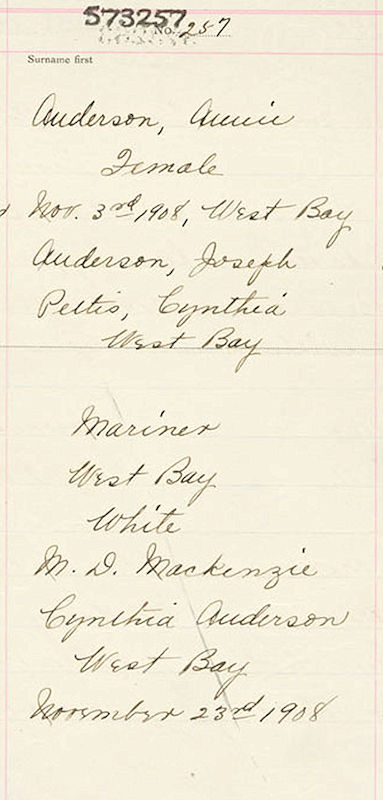 573257
No. 257
Surname first
Anderson, Annie
Female
Nov. 3rd 1908, West Bay
Anderson, Joseph
Pettis, Cynthia
West Bay
Mariner
West Bay
White
M. D. Mackenzie
Cynthia Anderson
West Bay
November 23rd 1908